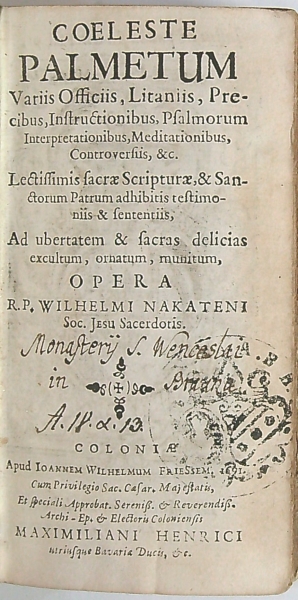 COELESTE
PALMETUM
Variis Officiis, Litaniis, Pre-
cibus, Instructionibus, Psalmorum
Interpretationibus, Meditationibus,
Controversiis, &c.
Lectissimis sacræ Scripturæ, & San-
ctorum Patrum adhibitis testimo-
niis & sententiis,
Ad ubertatem & sacras delicias
excultum, ornatum, munitum,
OPERA
R.P. WILHELMI NAKATENI
Soc. Jesu Sacerdotis.
Monasterij S. Wenceslai
in
A. 18
COLONIÆ
Apud IOANNEM WILHELMUM FRIESSEM
Cum Privilegio Sac. Cæsar. Majestatis,
Et speciali Approbat. Sereniss. & Reverendiss.
Archi-Ep. & Electoris Coloniensis
MAXIMILIANI HENRICI
utriusque Bavariæ Ducis, &c.